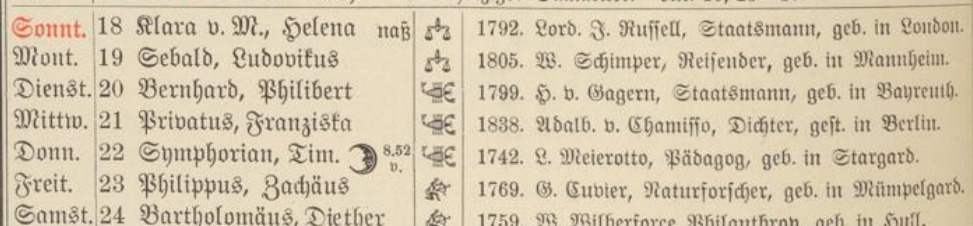 Sonnt. 18 Klara v. M., Helena naß 1792. Lord. J. Russell, Staatsmann, geb. in London.
Mont. 19 Sebald, Ludovikus 1805. W. Schimper, Reisender, geb. in Mannheim.
Dienst. 20 Bernhard, Philibert 1799. H. v. Gagern, Staatsmann, geb. in Bayreuth.
Mittw. 21 Privatus, Franziska 1838. Adalb. v. Chamisso, Dichter, gest. in Berlin.
Donn. 22 Symphorian, Tim. 8.52 v. 1742. L. Meierotto, Pädagog, geb. in Stargard.
Freit. 23 Philippus, Zachäus 1769. G. Cuvier, Naturforscher, geb. in Mümpelgard.
Samst. 24 Bartholomäus, Diether 1759. W. Wilberforce Philanthrop, geb. in Hull.